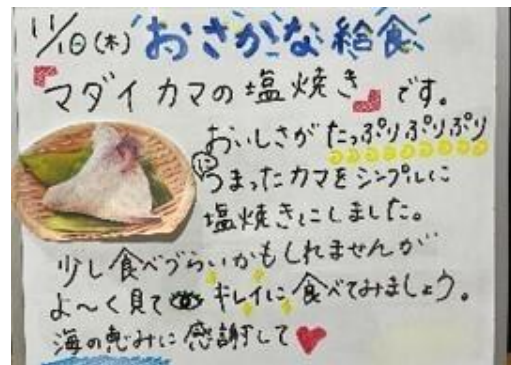 11/10(木) おさかな給食
『マダイカマの塩焼き』です。
おいしさが たっぷりぷりぷり
につまったカマをシンプルに
塩焼きにしました。
少し食べづらいかもしれませんが
よ〜く見て キレイに食べてみましょう。
海の恵みに感謝して♥